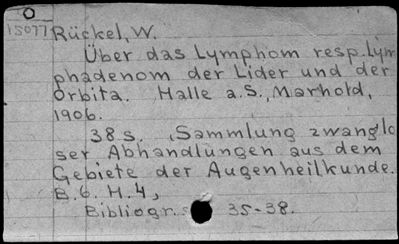 15077 Rückel, W.
Über das Lymphom resp. Lym
phadenom der Lider und der
Orbita. Halle a.S., Marhold,
1906.
38 s. (Sammlung zwanglo
ser Abhandlungen aus dem
Gebiete der Augenheilkunde.
B.6. H.4,
Bibliogr. s 35-38.